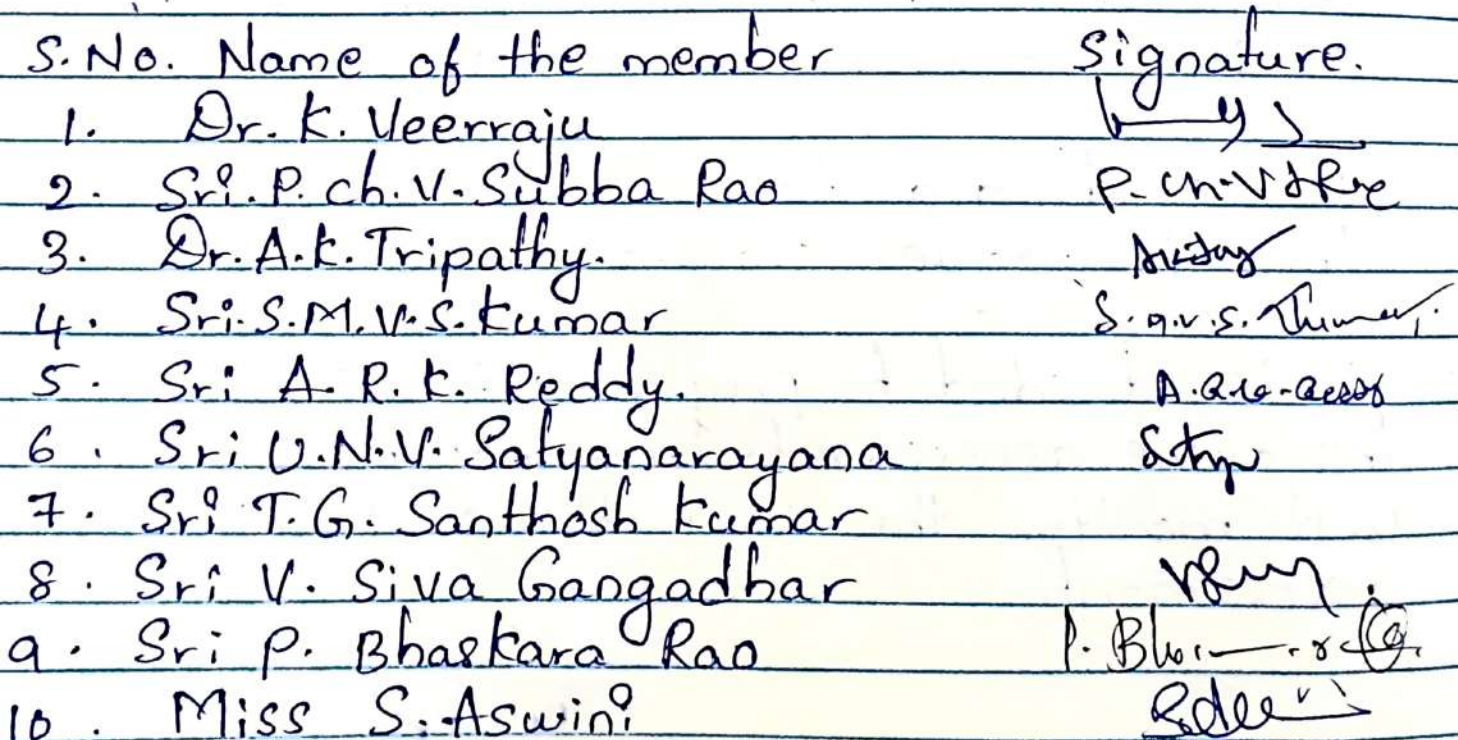 S. No. Name of the member Signature.
1. Dr. K. Veerraju
2. Sri. P. Ch. V. Subba Rao P. Ch. V
3. Dr. A. K. Tripathy.
4. Sri. S. M. V. S. Kumar
5. Sri A. R. K. Reddy.
6. Sri U. N. V. Satyanarayana
7. Sri T. G. Santhosh Kumar
8. Sri V. Siva Gangadhar
9. Sri P. Bhaskara Rao
10. Miss S. Aswini